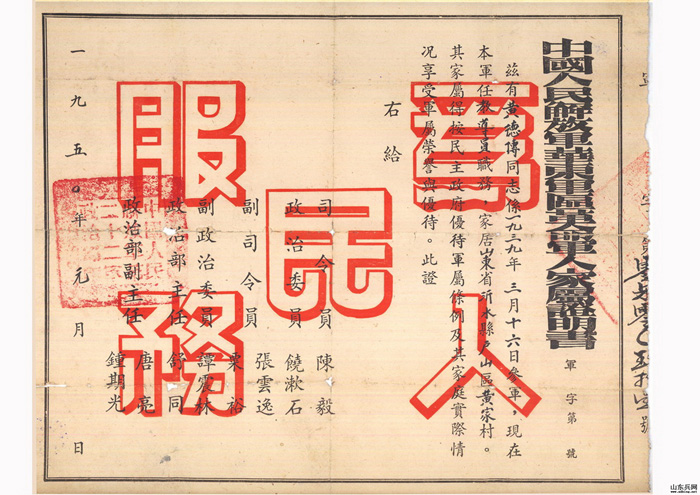 中國人民解放軍華東軍區革命軍人家屬證明書
軍字第 號
茲有黄德傳同志係一九三九年三月十六日參軍，現在
本軍任教導員職務，家居山東省沂水縣户山區黄家村。
其家屬得按民主政府優待軍屬條例及其家庭實際情
況享受軍屬榮譽與優待。此證
右給
爲人
民
服務
司令員 陳毅
政治委員 饒漱石
副司令員 張雲逸
粟裕
副政治委員 譚震林
政治部主任 舒同
政治部副主任 唐亮
鍾期光
一九五〇年元月 日
山东兵网